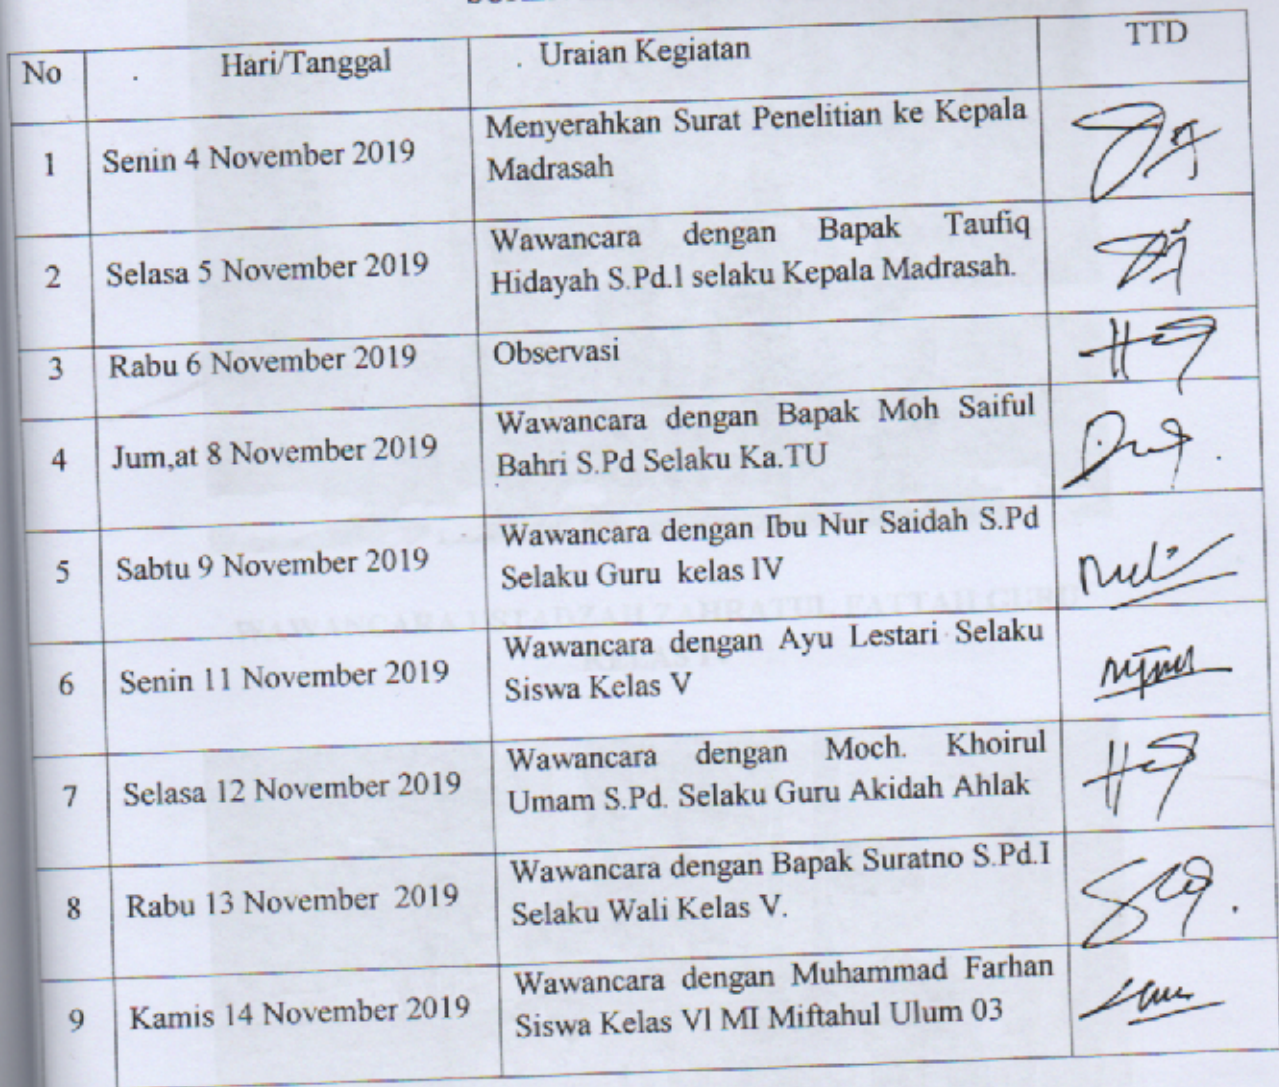 No Hari/Tanggal Uraian Kegiatan TTD
1 Senin 4 November 2019 Menyerahkan Surat Penelitian ke Kepala
Madrasah
2 Selasa 5 November 2019 Wawancara dengan Bapak Taufiq
Hidayah S.Pd.l selaku Kepala Madrasah.
3 Rabu 6 November 2019 Observasi
4 Jum,at 8 November 2019 Wawancara dengan Bapak Moh Saiful
Bahri S.Pd Selaku Ka.TU
5 Sabtu 9 November 2019 Wawancara dengan Ibu Nur Saidah S.Pd
Selaku Guru kelas IV
6 Senin 11 November 2019 Wawancara dengan Ayu Lestari Selaku
Siswa Kelas V
7 Selasa 12 November 2019 Wawancara dengan Moch. Khoirul
Umam S.Pd. Selaku Guru Akidah Ahlak
8 Rabu 13 November 2019 Wawancara dengan Bapak Suratno S.Pd.I
Selaku Wali Kelas V.
9 Kamis 14 November 2019 Wawancara dengan Muhammad Farhan
Siswa Kelas VI MI Miftahul Ulum 03